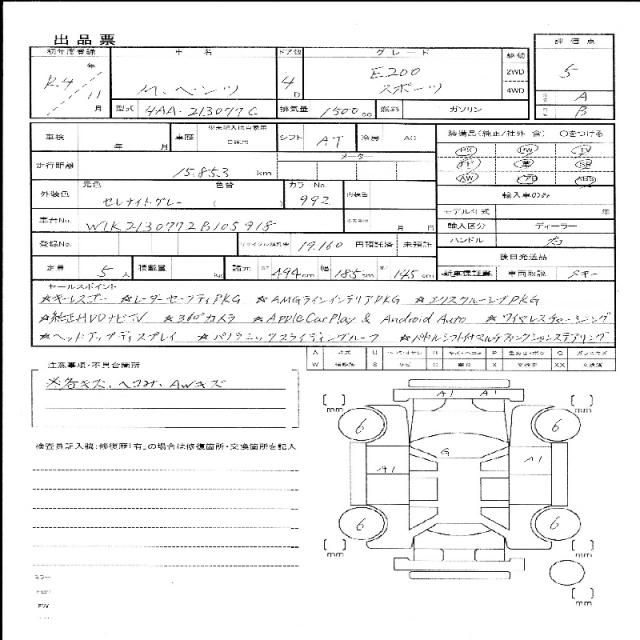 出品票
初年度登録 車名 ドア数 グレード 駆動 評価点
R.4年 11月 M.ベンツ 4D E200 スポーツ 2WD 4WD 5
型式 4AA-213077C 排気量 1500cc 燃料 ガソリン A B
車検 年 月 車歴 シフト AT 冷房 AC 装備品(純正/社外 含) ○をつける
走行距離 15,853 km メーター PS PW TV
AW ABS
外装色 元色 セレナイトグレー 色替 ( ) カラーNo 992 内装色 輸入車のみ
モデル年式 年
車台No. W1K2130772B105918 月 日 輸入区分 ディーラー
登録No. リサイクル預託金 19,160 円預託済 未預託 ハンドル 右
後日発送品
定員 5人 積載量 kg 諸元 494cm 幅 185cm 高 145cm 新車保証書 車両取説 スキー
セールスポイント
☆キーレスゴー ☆レーダーセーフティPKG ☆AMGラインインテリアPKG ☆エクスクルーシブPKG
☆純正HDDナビTV ☆360°カメラ ☆Apple CarPlay & Android Auto ☆ワイヤレスチャージング
☆ヘッドアップディスプレイ ☆パノラミックスライディングルーフ ☆パドルシフト付マルチファンクションステアリング
注意事項・不具合箇所
※各キズ、ヘコミ、AWキズ
検査員記入欄:修復歴「有」の場合は修復箇所・交換箇所を記入
A U P G
W S X XX
[ ] mm A1 A1 [ ] mm
6 6
G
A1 A1
6 6
[ ] mm [ ] mm
[ ] mm